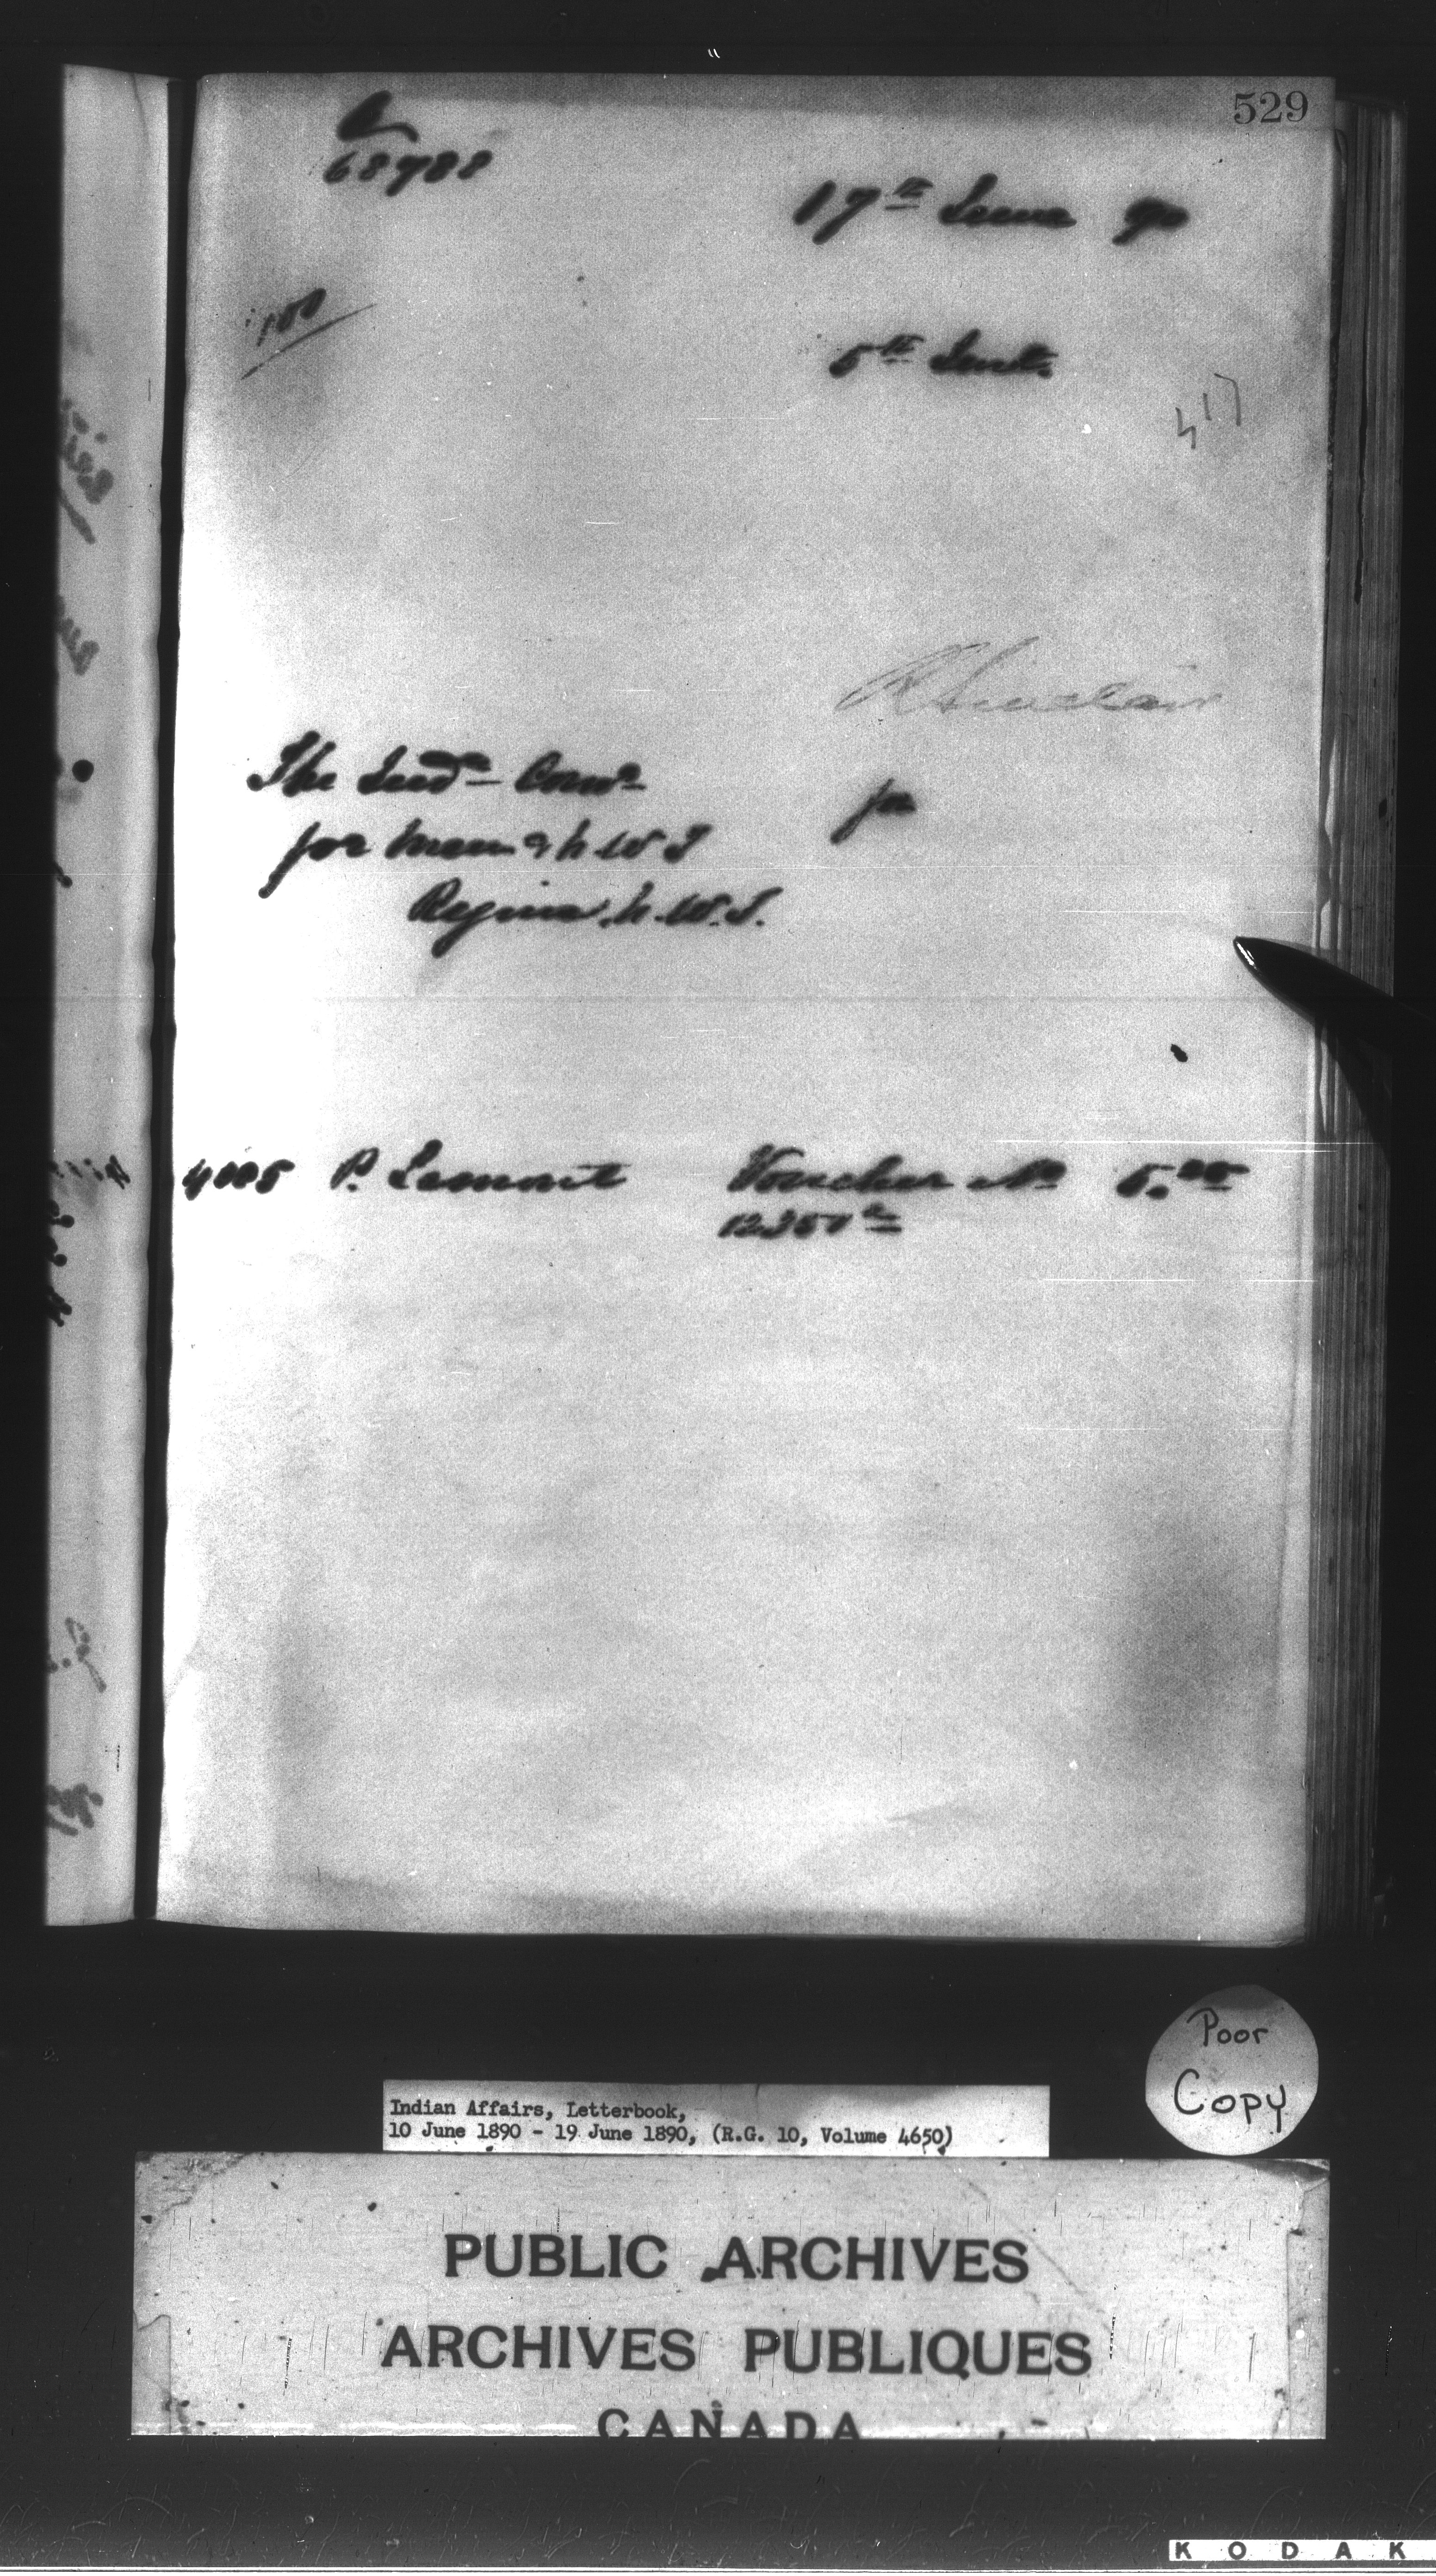 529
68788
17th June 90
100
5th Inst.
417
R Sinclair
The Indn Comr
for
for Man & N W T
Regina N.W.T.
4005 P. Lamont Voucher No 5.00
12351a
Poor
Copy
Indian Affairs, Letterbook,
10 June 1890 - 19 June 1890, (R.G. 10, Volume 4650)
PUBLIC ARCHIVES
ARCHIVES PUBLIQUES
CANADA
KODAK